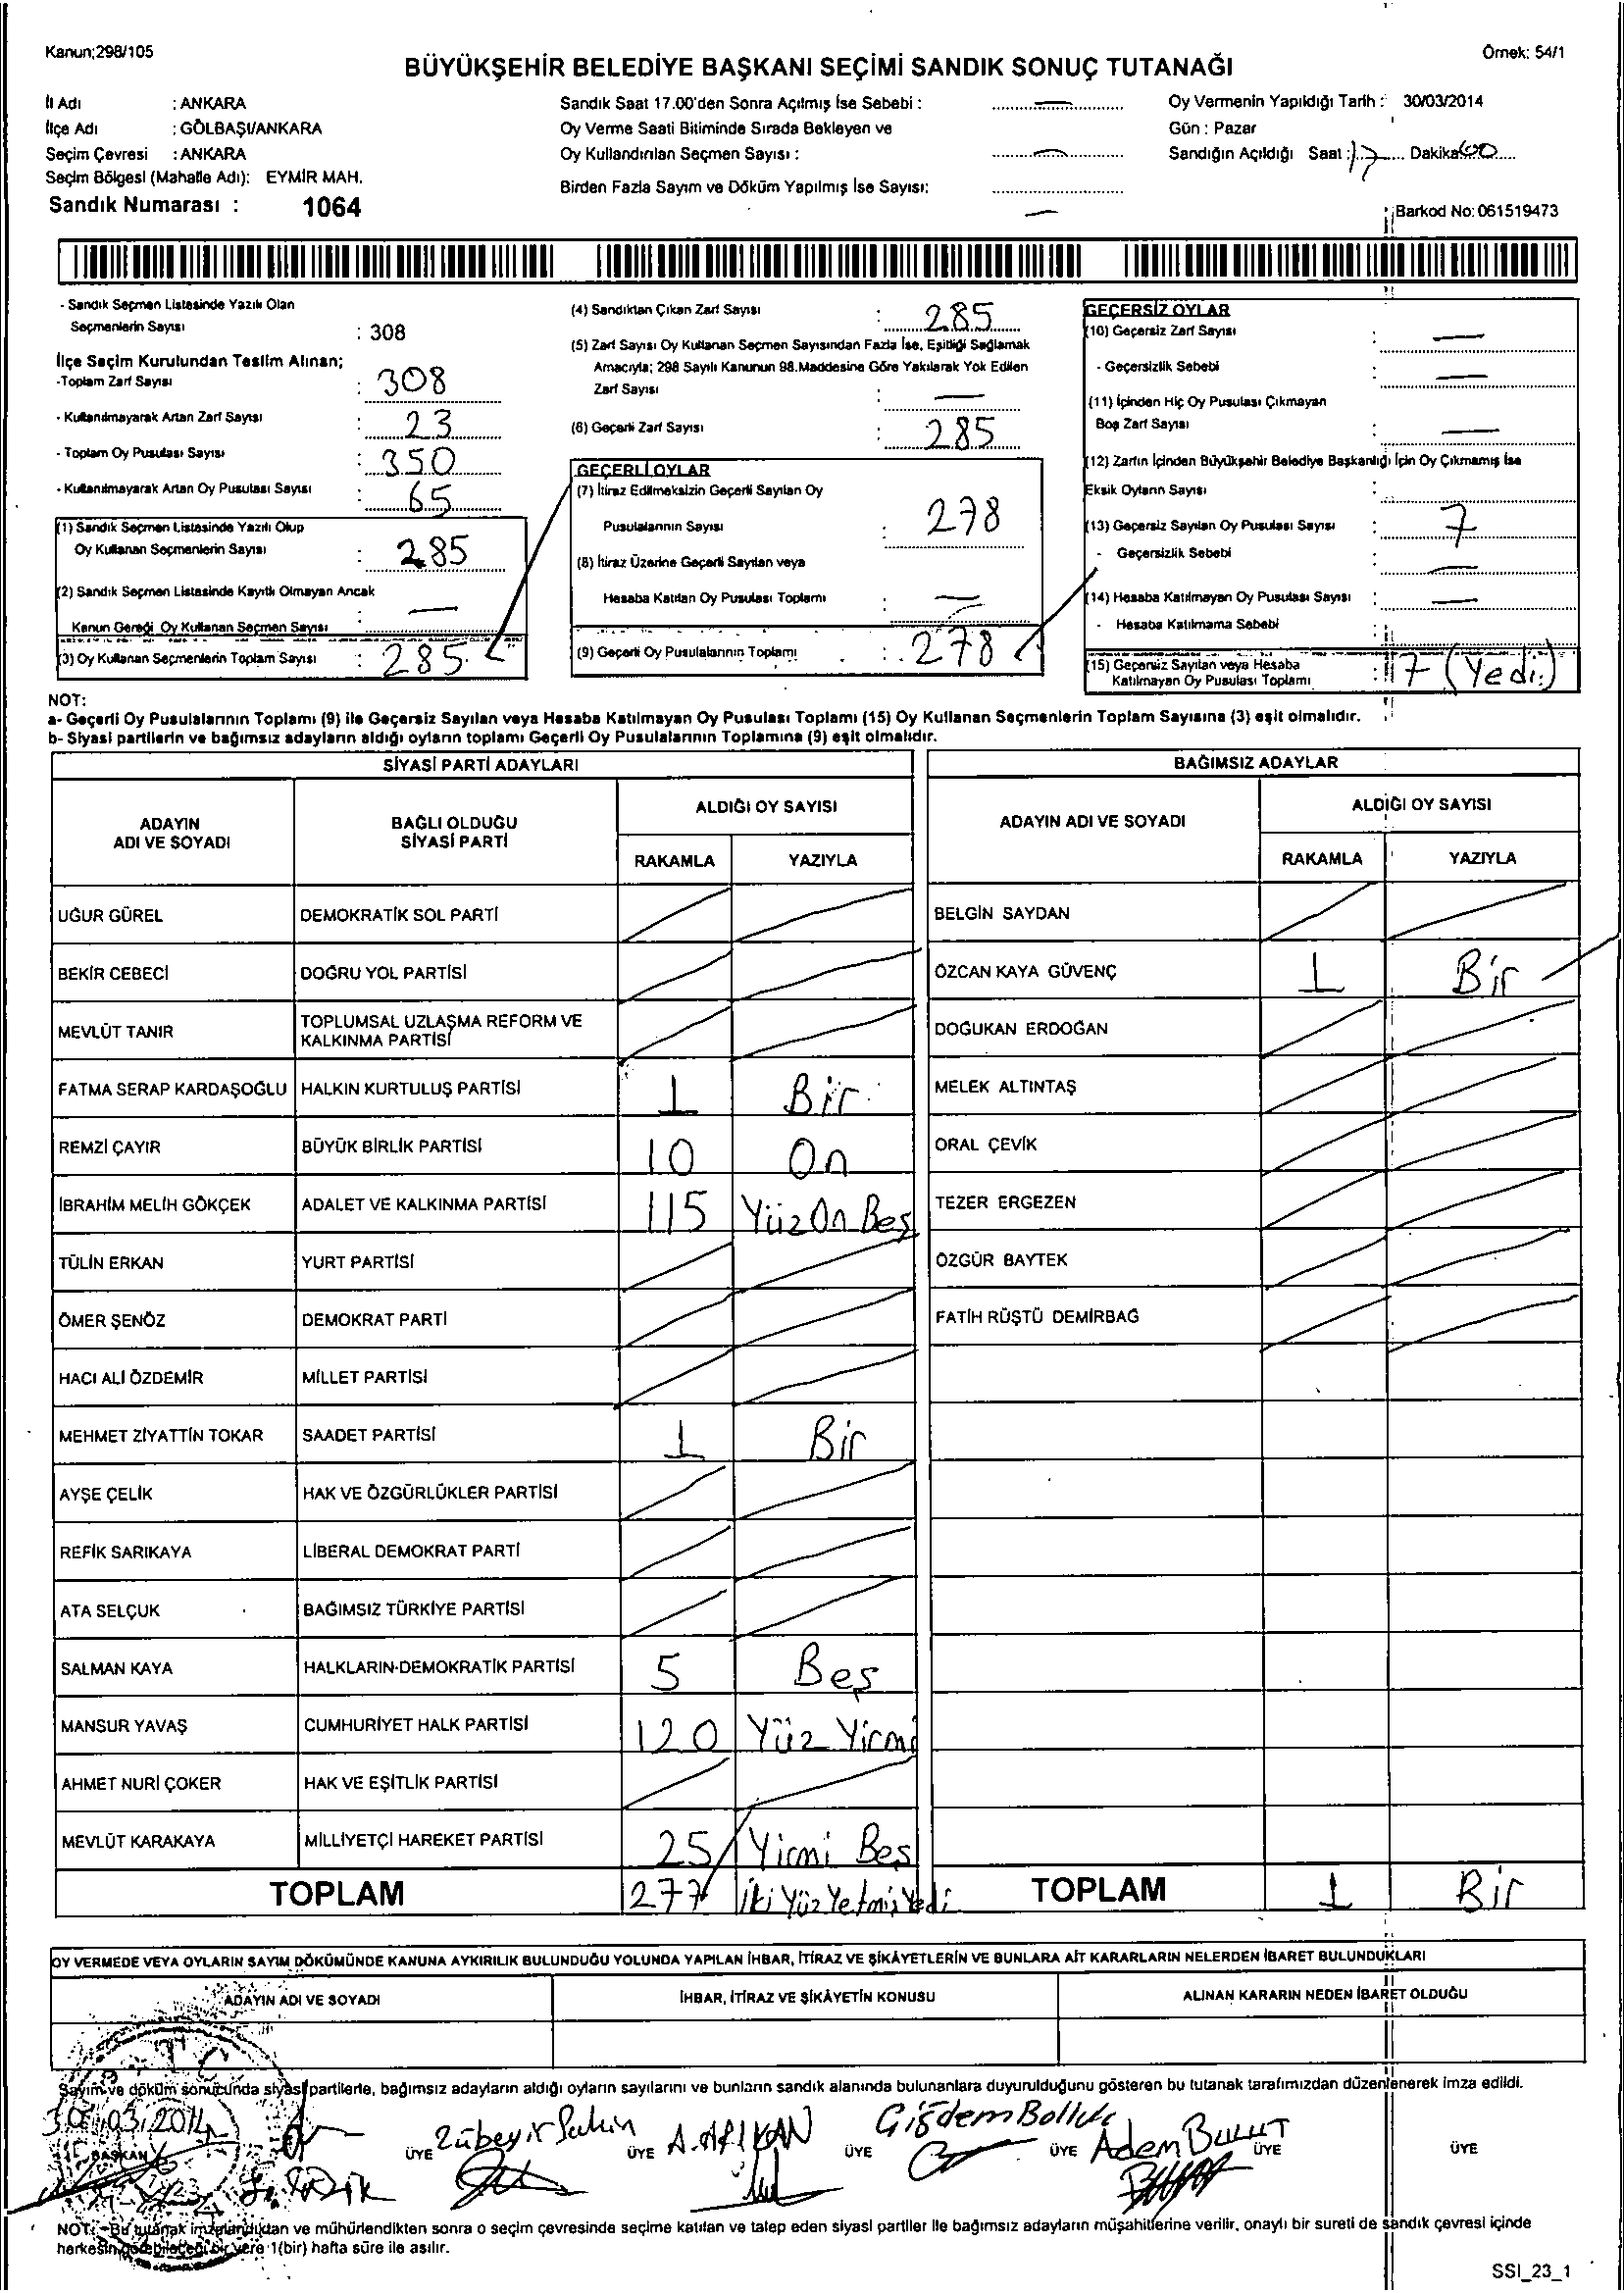 Kanun;298/105
Örnek: 54/1
BÜYÜKŞEHİR BELEDİYE BAŞKANI SEÇİMİ SANDIK SONUÇ TUTANAĞI
İl Adı : ANKARA
İlçe Adı : GÖLBAŞI/ANKARA
Seçim Çevresi : ANKARA
Seçim Bölgesi (Mahalle Adı): EYMİR MAH.
Sandık Numarası : 1064
Sandık Saat 17.00'den Sonra Açılmış İse Sebebi : —
Oy Verme Saati Bitiminde Sırada Bekleyen ve
Oy Kullandırılan Seçmen Sayısı : —
Birden Fazla Sayım ve Döküm Yapılmış İse Sayısı: —
Oy Vermenin Yapıldığı Tarih : 30/03/2014
Gün : Pazar
Sandığın Açıldığı Saat : 17 Dakika 00
Barkod No: 061519473
- Sandık Seçmen Listesinde Yazılı Olan
Seçmenlerin Sayısı : 308
İlçe Seçim Kurulundan Teslim Alınan;
-Toplam Zarf Sayısı : 308
- Kullanılmayarak Artan Zarf Sayısı : 23
- Toplam Oy Pusulası Sayısı : 350
- Kullanılmayarak Artan Oy Pusulası Sayısı : 65
(1) Sandık Seçmen Listesinde Yazılı Olup
Oy Kullanan Seçmenlerin Sayısı : 285
(2) Sandık Seçmen Listesinde Kayıtlı Olmayan Ancak
Kanun Gereği Oy Kullanan Seçmen Sayısı : —
(3) Oy Kullanan Seçmenlerin Toplam Sayısı : 285
(4) Sandıktan Çıkan Zarf Sayısı : 285
(5) Zarf Sayısı Oy Kullanan Seçmen Sayısından Fazla İse, Eşitliği Sağlamak
Amacıyla; 298 Sayılı Kanunun 98.Maddesine Göre Yakılarak Yok Edilen
Zarf Sayısı : —
(6) Geçerli Zarf Sayısı : 285
GEÇERLİ OYLAR
(7) İtiraz Edilmeksizin Geçerli Sayılan Oy
Pusulalarının Sayısı : 278
(8) İtiraz Üzerine Geçerli Sayılan veya
Hesaba Katılan Oy Pusulası Toplamı : —
(9) Geçerli Oy Pusulalarının Toplamı : 278
GEÇERSİZ OYLAR
(10) Geçersiz Zarf Sayısı : —
- Geçersizlik Sebebi : —
(11) İçinden Hiç Oy Pusulası Çıkmayan
Boş Zarf Sayısı : —
(12) Zarfın İçinden Büyükşehir Belediye Başkanlığı İçin Oy Çıkmamış İse
Eksik Oyların Sayısı :
(13) Geçersiz Sayılan Oy Pusulası Sayısı : 7
- Geçersizlik Sebebi : —
(14) Hesaba Katılmayan Oy Pusulası Sayısı : —
- Hesaba Katılmama Sebebi :
(15) Geçersiz Sayılan veya Hesaba
Katılmayan Oy Pusulası Toplamı : 7 (Yedi)
NOT:
a- Geçerli Oy Pusulalarının Toplamı (9) ile Geçersiz Sayılan veya Hesaba Katılmayan Oy Pusulası Toplamı (15) Oy Kullanan Seçmenlerin Toplam Sayısına (3) eşit olmalıdır.
b- Siyasi partilerin ve bağımsız adayların aldığı oyların toplamı Geçerli Oy Pusulalarının Toplamına (9) eşit olmalıdır.
SİYASİ PARTİ ADAYLARI
ADAYIN ADI VE SOYADI BAĞLI OLDUĞU SİYASİ PARTİ ALDIĞI OY SAYISI
RAKAMLA YAZIYLA
UĞUR GÜREL DEMOKRATİK SOL PARTİ
BEKİR CEBECİ DOĞRU YOL PARTİSİ
MEVLÜT TANIR TOPLUMSAL UZLAŞMA REFORM VE KALKINMA PARTİSİ
FATMA SERAP KARDAŞOĞLU HALKIN KURTULUŞ PARTİSİ 1 Bir
REMZİ ÇAYIR BÜYÜK BİRLİK PARTİSİ 10 On
İBRAHİM MELİH GÖKÇEK ADALET VE KALKINMA PARTİSİ 115 Yüz On Beş
TÜLİN ERKAN YURT PARTİSİ
ÖMER ŞENÖZ DEMOKRAT PARTİ
HACI ALİ ÖZDEMİR MİLLET PARTİSİ
MEHMET ZİYATTİN TOKAR SAADET PARTİSİ 1 Bir
AYŞE ÇELİK HAK VE ÖZGÜRLÜKLER PARTİSİ
REFİK SARIKAYA LİBERAL DEMOKRAT PARTİ
ATA SELÇUK BAĞIMSIZ TÜRKİYE PARTİSİ
SALMAN KAYA HALKLARIN DEMOKRATİK PARTİSİ 5 Beş
MANSUR YAVAŞ CUMHURİYET HALK PARTİSİ 120 Yüz Yirmi
AHMET NURİ ÇOKER HAK VE EŞİTLİK PARTİSİ
MEVLÜT KARAKAYA MİLLİYETÇİ HAREKET PARTİSİ 25 Yirmi Beş
TOPLAM 277 İki Yüz Yetmiş Yedi
BAĞIMSIZ ADAYLAR
ADAYIN ADI VE SOYADI ALDIĞI OY SAYISI
RAKAMLA YAZIYLA
BELGİN SAYDAN
ÖZCAN KAYA GÜVENÇ 1 Bir
DOĞUKAN ERDOĞAN
MELEK ALTINTAŞ
ORAL ÇEVİK
TEZER ERGEZEN
ÖZGÜR BAYTEK
FATİH RÜŞTÜ DEMİRBAĞ
TOPLAM 1 Bir
OY VERMEDE VEYA OYLARIN SAYIM DÖKÜMÜNDE KANUNA AYKIRILIK BULUNDUĞU YOLUNDA YAPILAN İHBAR, İTİRAZ VE ŞİKÂYETLERİN VE BUNLARA AİT KARARLARIN NELERDEN İBARET BULUNDUKLARI
ADAYIN ADI VE SOYADI İHBAR, İTİRAZ VE ŞİKÂYETİN KONUSU ALINAN KARARIN NEDEN İBARET OLDUĞU
Sayım ve döküm sonucunda siyasi partilerle, bağımsız adayların aldığı oyların sayılarını ve bunların sandık alanında bulunanlara duyurulduğunu gösteren bu tutanak tarafımızdan düzenlenerek imza edildi.
30.03.2014
BAŞKAN ÜYE Zübeyir Şahin ÜYE A. ARIKAN ÜYE ÜYE Adem BULUT ÜYE ÜYE
NOT: -Bu tutanak imzalandıktan ve mühürlendikten sonra o seçim çevresinde seçime katılan ve talep eden siyasi partiler ile bağımsız adayların müşahitlerine verilir, onaylı bir sureti de sandık çevresi içinde
herkesin görebileceği bir yere 1(bir) hafta süre ile asılır.
SSI_23_1